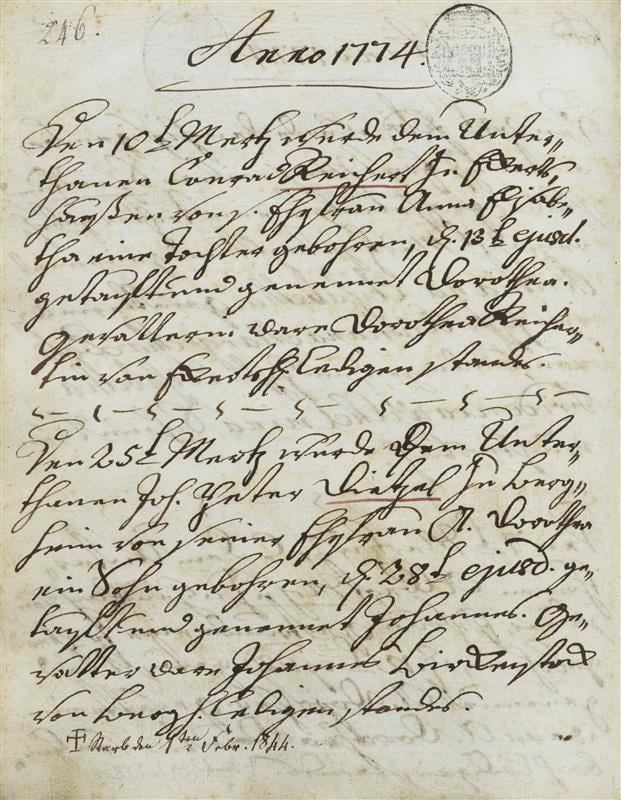 246.
Anno 1774.
Den 10t Mertz wurde dem Unter-
thanen Conrad Reichert In Ekerts-
haußen von s. Ehefrau Anna Elisabe-
tha eine Tochter gebohren, d. 13t ejusd.
getauft und genennet Dorothea.
Gevatterin ware Dorothea Reicher-
tin von Ekertsh. ledigen standes.
Den 25t Mertz wurde dem Unter-
thanen Joh. Peter Dietzel In Berg-
heim von seiner Ehefrau A. Dorothea
ein Sohn gebohren, d. 28t ejusd. ge-
tauft und genennet Johannes. Ge-
vatter ware Johannes Birckenstock
von Bergh. ledigen standes.
Starb den 1ten Febr. 1844.